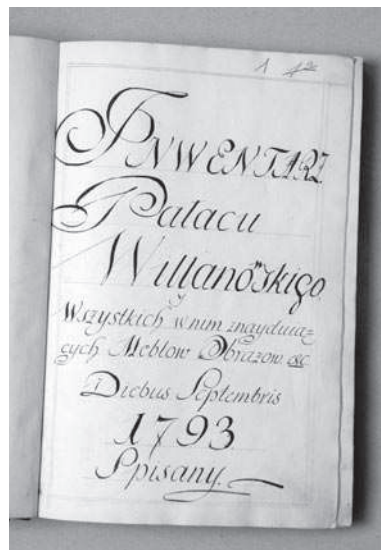 INWENTARZ
Pałacu
Willanowskiego
Wszystkich w nim znayduią-
cych Meblow Obrazow &c
Diebus Septembris
1793
Spisany.